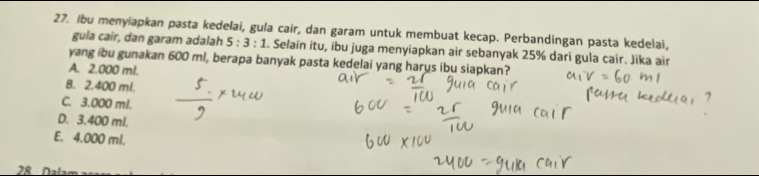 27. Ibu menyiapkan pasta kedelai, gula cair, dan garam untuk membuat kecap. Perbandingan pasta kedelai,
gula cair, dan garam adalah 5 : 3 : 1. Selain itu, ibu juga menyiapkan air sebanyak 25% dari gula cair. Jika air
yang ibu gunakan 600 ml, berapa banyak pasta kedelai yang harus ibu siapkan?
A. 2.000 ml.
B. 2.400 ml.
C. 3.000 ml.
D. 3.400 ml.
E. 4.000 ml.
5/9 × 2400
air = 25/100 gula cair
600 = 25/100 gula cair
600 × 100
2400 = gula cair
air = 60 ml
pasta kedelai ?
28. Dalam